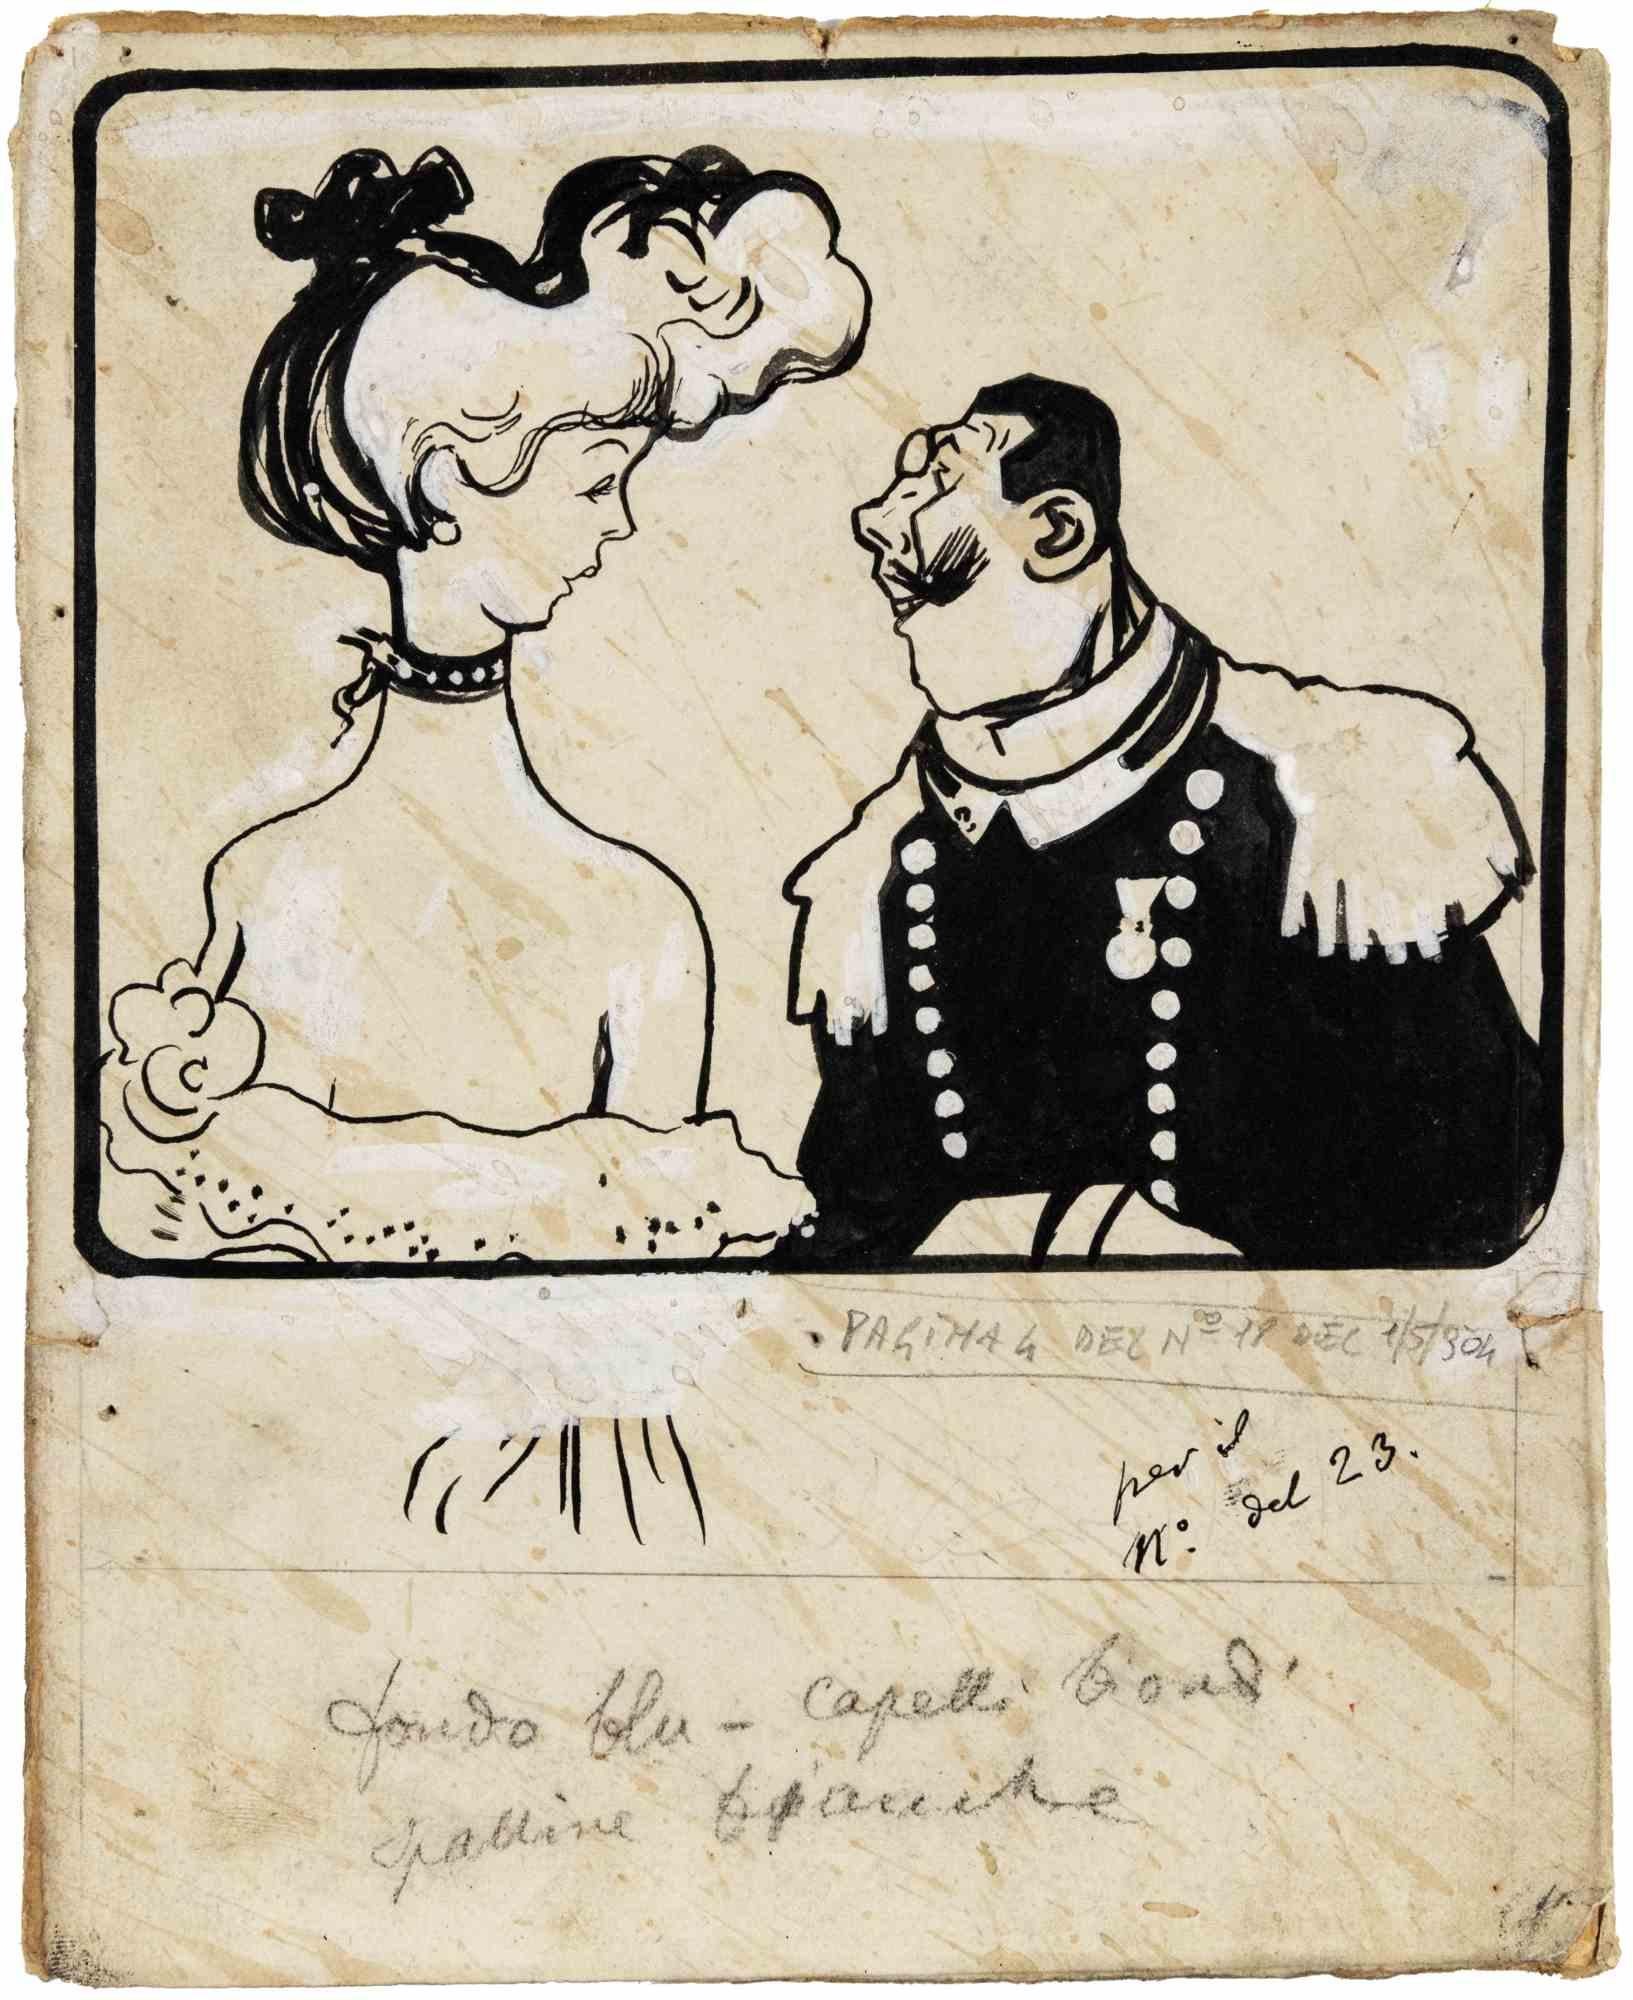 PAGINA 4 DEL Nº 18 DEL 1/5/904
per il
Nº. del 23.
fondo blu - capelli biondi
spalline bianche